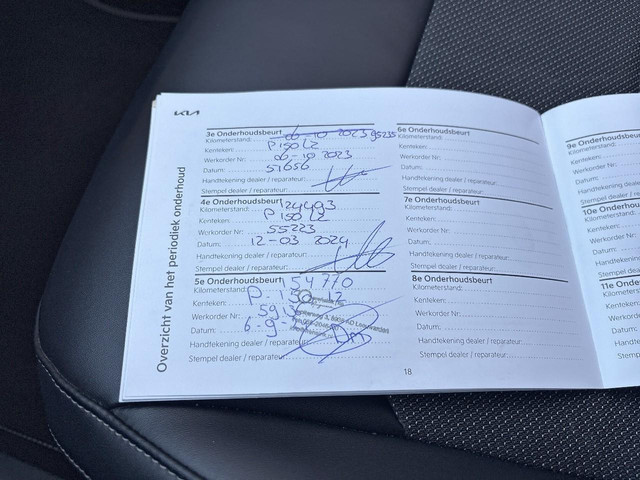 KIA
Overzicht van het periodiek onderhoud
3e Onderhoudsbeurt
Kilometerstand: 06-10 2023 95235
Kenteken: P150LZ
Werkorder Nr: 06-10-2023
Datum: 51656
Handtekening dealer / reparateur:
Stempel dealer / reparateur:
4e Onderhoudsbeurt
Kilometerstand: 124493
Kenteken: P150LZ
Werkorder Nr: 55223
Datum: 12-03 2024
Handtekening dealer / reparateur:
Stempel dealer / reparateur:
5e Onderhoudsbeurt
Kilometerstand: 154770
Kenteken: P-150
Werkorder Nr:
Datum: 6-9-
Handtekening dealer / reparateur:
Stempel dealer / reparateur:
6e Onderhoudsbeurt
Kilometerstand:
Kenteken:
Werkorder Nr:
Datum:
Handtekening dealer / reparateur:
Stempel dealer / reparateur:
7e Onderhoudsbeurt
Kilometerstand:
Kenteken:
Werkorder Nr:
Datum:
Handtekening dealer / reparateur:
Stempel dealer / reparateur:
8e Onderhoudsbeurt
Kilometerstand:
Kenteken:
Werkorder Nr:
Datum:
Handtekening dealer / reparateur:
Stempel dealer / reparateur:
18
9e Onderhoudsbeurt
Kilometerstand:
Kenteken:
Werkorder Nr:
Datum:
Handtekening
Stempel dealer
10e Onderho
Kilometerstand
Kenteken:
Werkorder Nr:
Datum:
Handtekening
Stempel deale
11e Onder
Kilometersta
Kenteken:
Werkorder
Datum:
Handteken
Stempel d